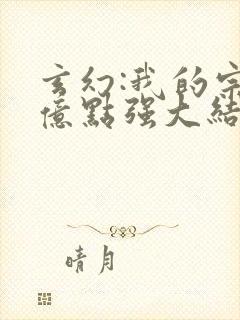 玄幻:我的宗
億點强大結
晴月